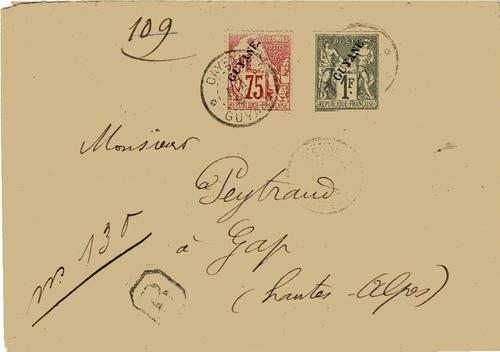 109
COLONIES
POSTES
GUYANE.
75
REPUBLIQUE FRANÇAISE
POSTES
GUYANE.
1F
REPUBLIQUE FRANÇAISE
CAY
GUYA
Monsieur
Peytraud
à Gap
(hautes-Alpes)
no. 130
R